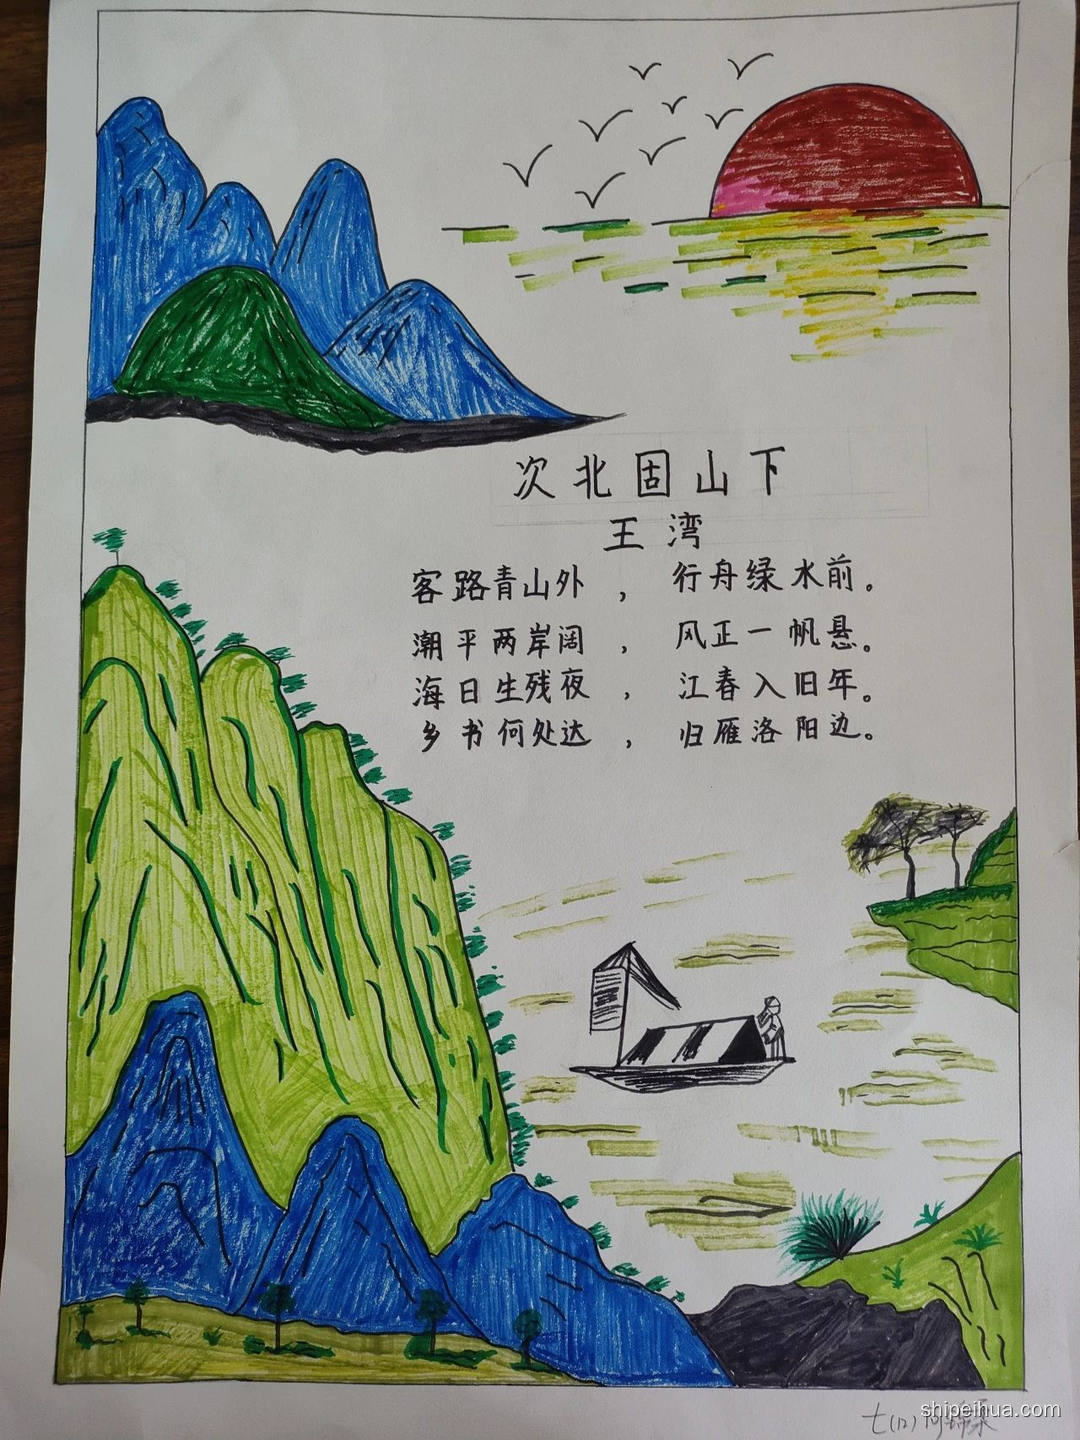 次北固山下
王湾
客路青山外，行舟绿水前。
潮平两岸阔，风正一帆悬。
海日生残夜，江春入旧年。
乡书何处达，归雁洛阳边。
shipeihua.com
七(12)